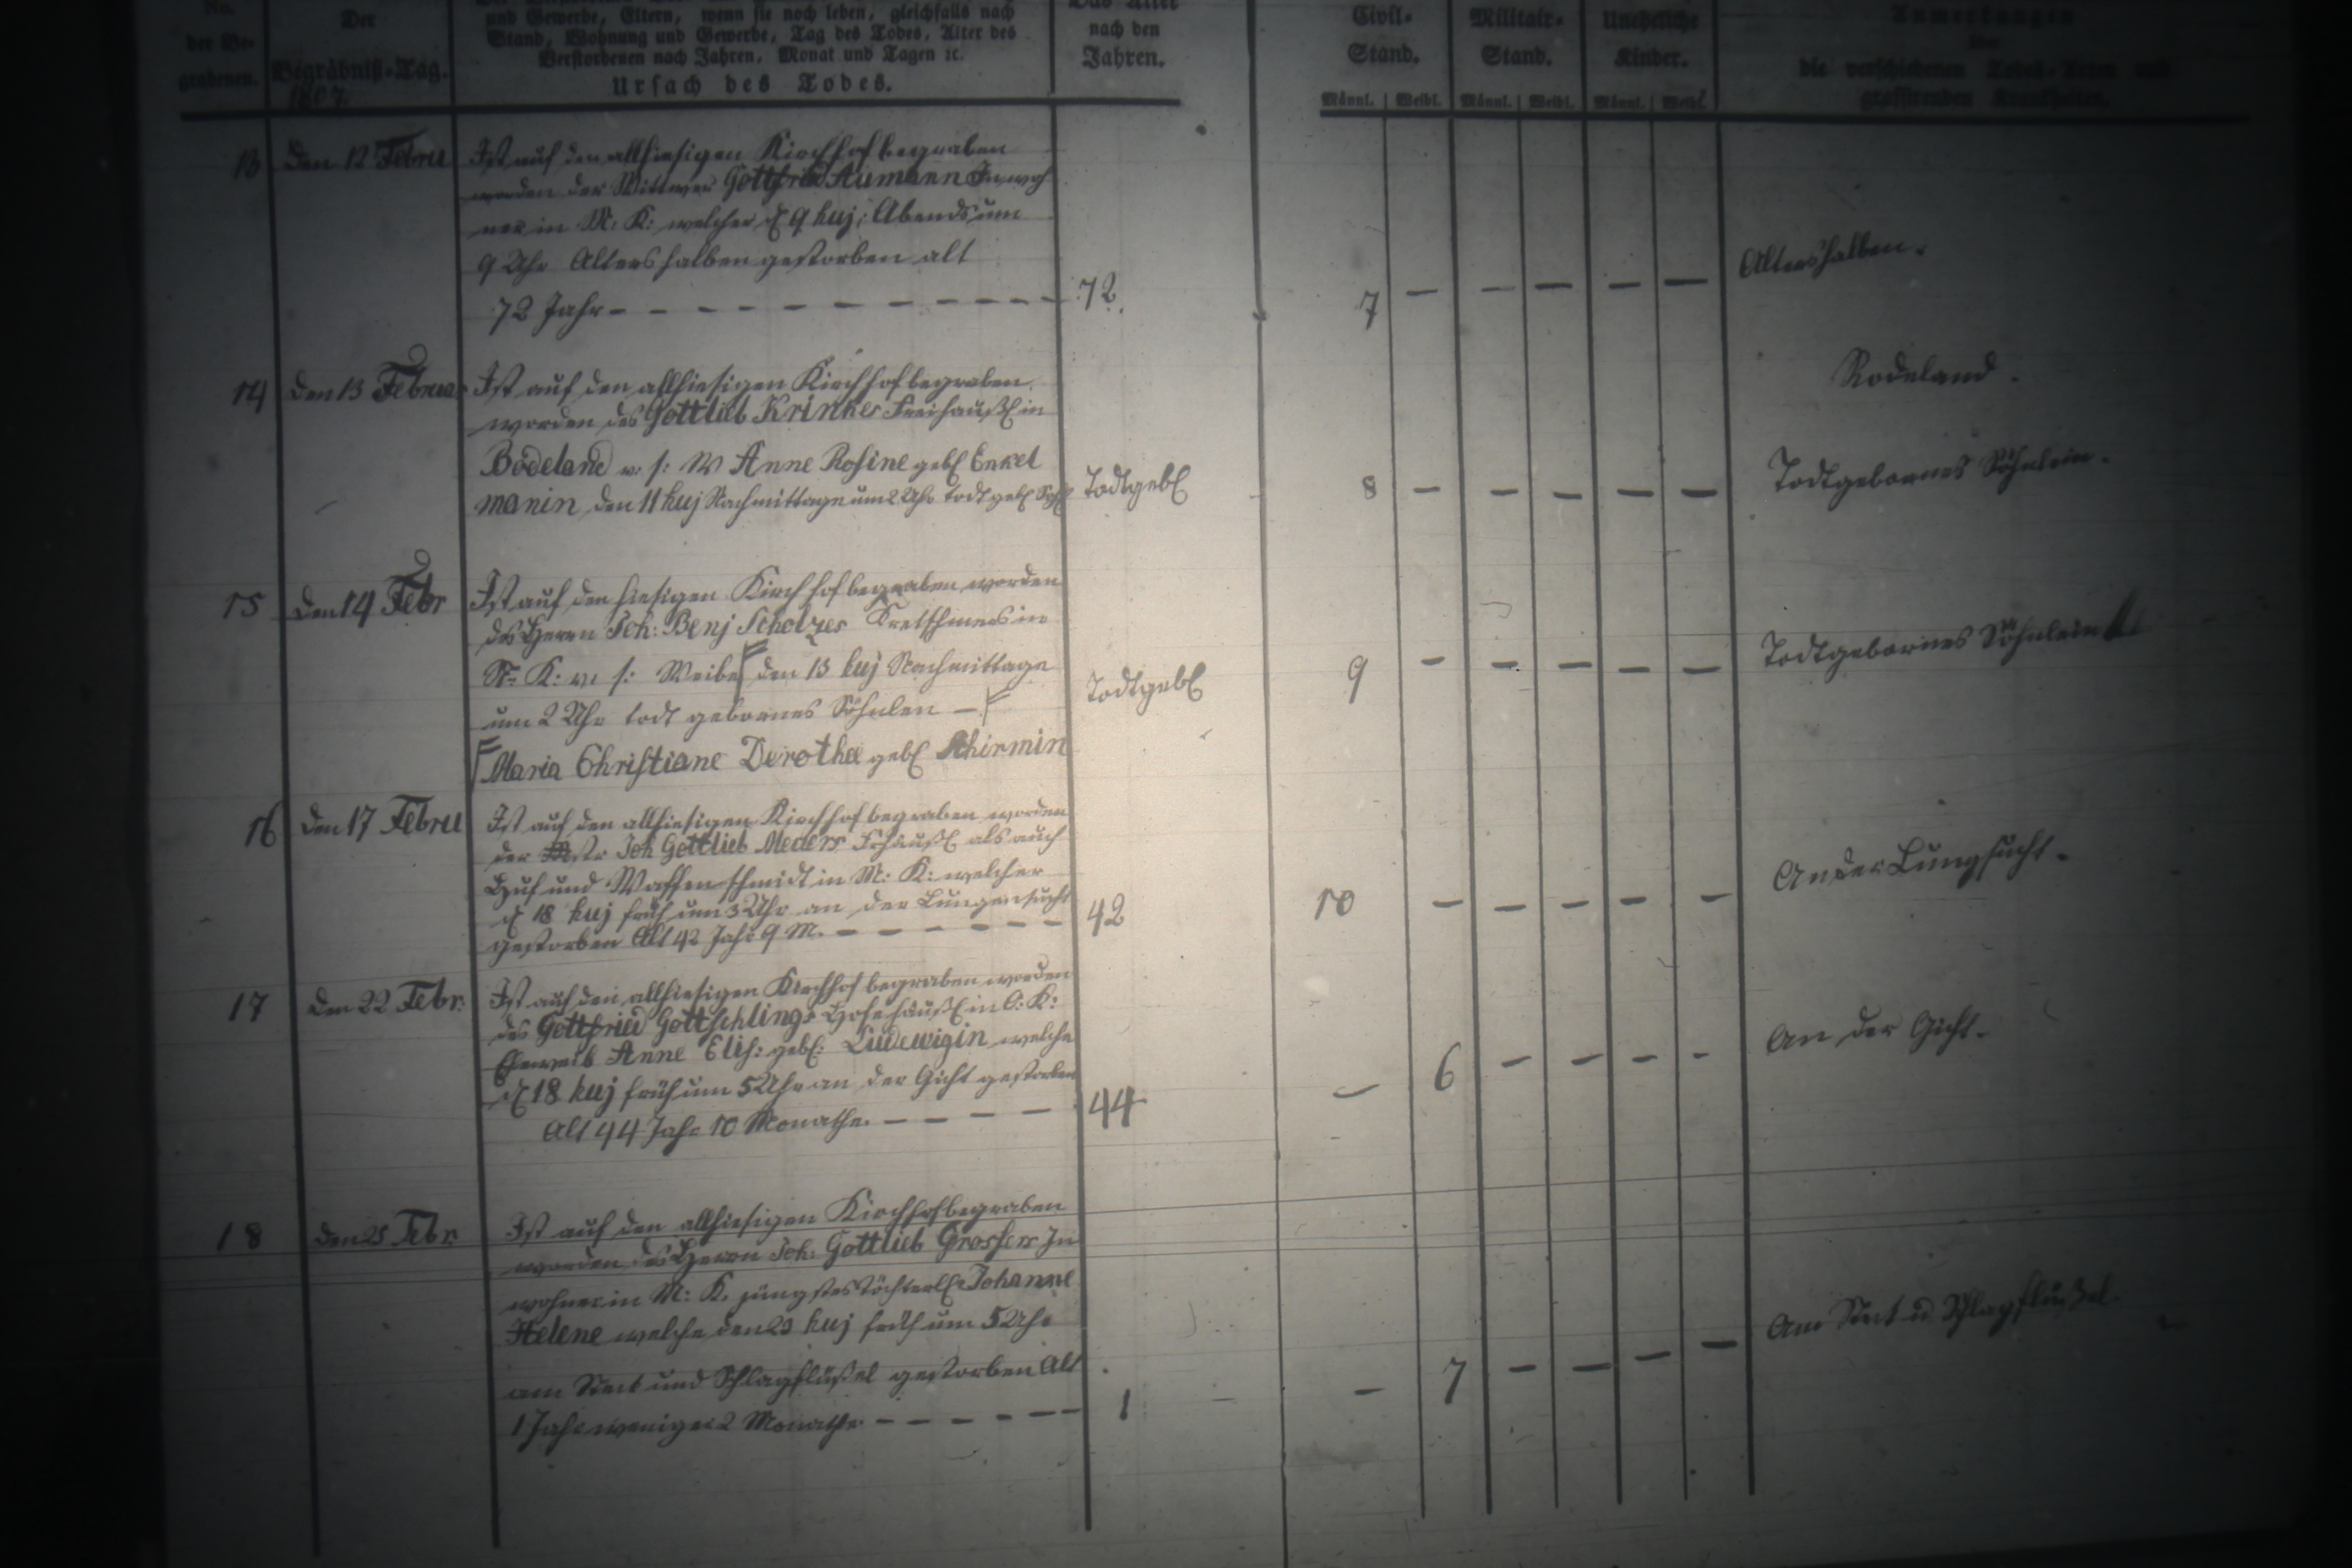 No. der Begrabenen.
Der Begräbniß-Tag.
1807.
und Gewerbe, Eltern, wenn sie noch leben, gleichfalls nach
Stand, Wohnung und Gewerbe, Tag des Todes, Alter des
Verstorbenen nach Jahren, Monat und Tagen ꝛc.
Ursach des Todes.
Das Alter nach den Jahren.
Civil-Stand.
Militair-Stand.
Uneheliche Kinder.
Anmerkungen
die verschiedenen Todes-Arten und
grassirenden Krankheiten.
Männl. Weibl. Männl. Weibl. Männl. Weibl.
13 den 12 Febru
Ist auf den allhiesigen Kirchhof begraben
worden der Wittwer Gottfried Aumann Inwoh
ner in M: K: welcher d 9 huj: Abends um
9 Uhr Altershalben gestorben alt
72 Jahr — 72. 7 — — — — — Altershalben.
14 den 13 Februar
Ist auf den allhiesigen Kirchhof begraben
worden des Gottlieb Krinkes Freihäußl in
Bodeland u: s: W Anne Rosine geb Enkel
manin den 11 huj Nachmittage um 2 Uhr todt geb
Todtgeb 8 — — — — —
Rodeland.
Todtgebornes Söhnlein.
15 den 14 Febr
Ist auf den hiesigen Kirchhof begraben worden
des Herrn Joh: Benj Scholzes Kretschmers in
K: u: s: Weibe den 13 huj Nachmittage
um 2 Uhr todt gebornes Söhnlen —
Maria Christiane Dorothea geb Schirmin
Todtgeb 9 — — — — — Todtgebornes Söhnlein
16 den 17 Febru
Ist auf den allhiesigen Kirchhof begraben worden
der Mstr Joh Gottlieb Meders als auch
Huf und Waffenschmidt in M: K: welcher
d 18 huj früh um 3 Uhr an der Lungensucht
gestorben Alt 42 Jahr 9 M. — 42 10 — — — — — An der Lungsucht.
17 den 22 Febr:
Ist auf den allhiesigen Kirchhof begraben worden
des Gottfried Gottschlings Hofehäußl in O: K:
Eheweib Anne Elis: geb: Ludewigin welche
d 18 huj früh um 5 Uhr an der Gicht gestorben
Alt 44 Jahr 10 Monathe. — 44 — 6 — — — — An der Gicht.
18 den 25 Febr.
Ist auf den allhiesigen Kirchhof begraben
worden des Herrn Joh: Gottlieb Grossers In
wohner in M: K. jüngstes Töchterl Johanne
Helene welche den 23 huj früh um 5 Uhr
am und Schlagflüßel gestorben Alt
1 Jahr weniger 2 Monathe — 1 — 7 — — — — Am u Schlagflußel.